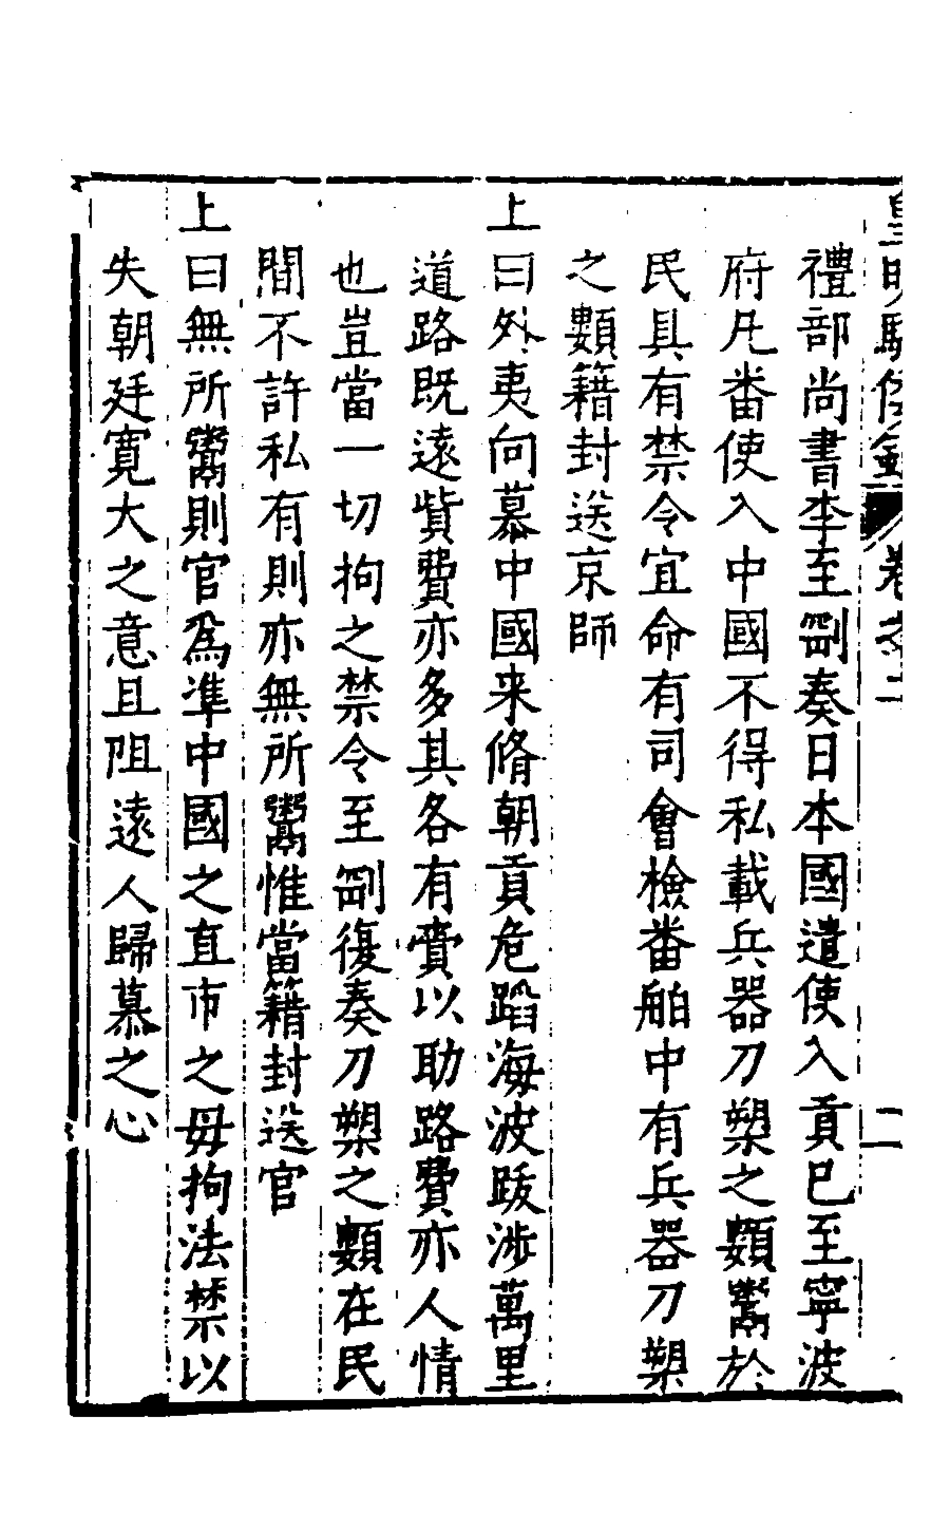 皇明馭倭錄 卷之二 二
禮部尚書李至剛奏日本國遣使入貢已至寧波
府凡番使入中國不得私載兵器刀槊之類鬻於
民具有禁令宜命有司會檢番舶中有兵器刀槊
之類籍封送京師
上曰外夷向慕中國来脩朝貢危蹈海波跋涉萬里
道路既遠貲費亦多其各有賫以助路費亦人情
也豈當一切拘之禁令至剛復奏刀槊之類在民
間不許私有則亦無所鬻惟當籍封送官
上曰無所鬻則官為準中國之直市之毋拘法禁以
失朝廷寬大之意且阻遠人歸慕之心